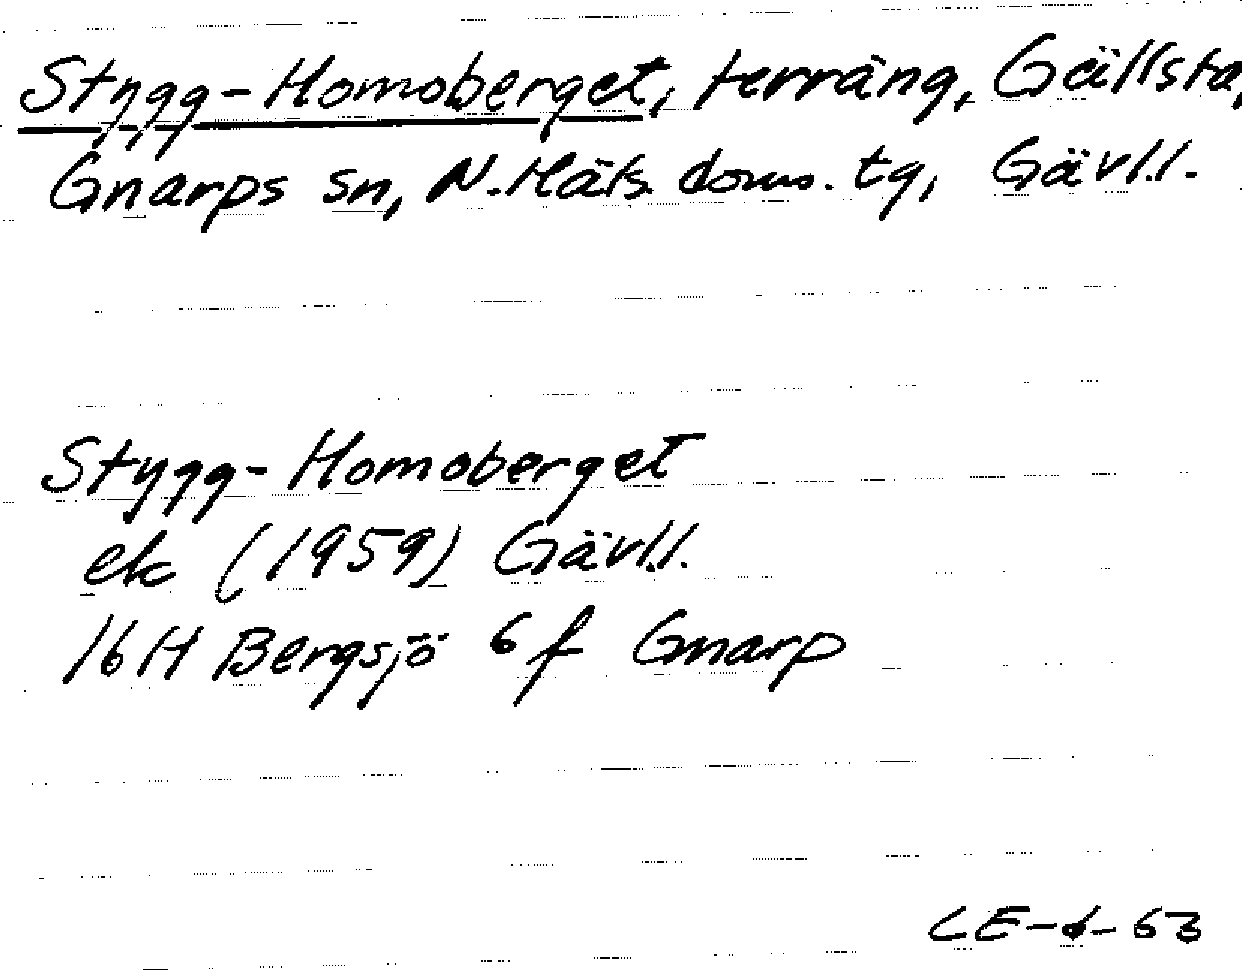 Stygg-Homoberget, terräng, Gällsta,
Gnarps sn, N. Häls. doms. tg, Gävl.l.
Stygg-Homoberget
ek (1959) Gävl.l.
16H Bergsjö 6f Gnarp